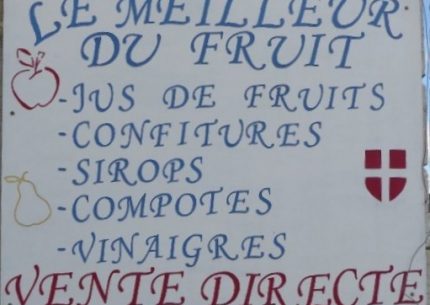 LE MEILLEUR
DU FRUIT
-JUS DE FRUITS
-CONFITURES
-SIROPS
-COMPOTES
-VINAIGRES
VENTE DIRECTE